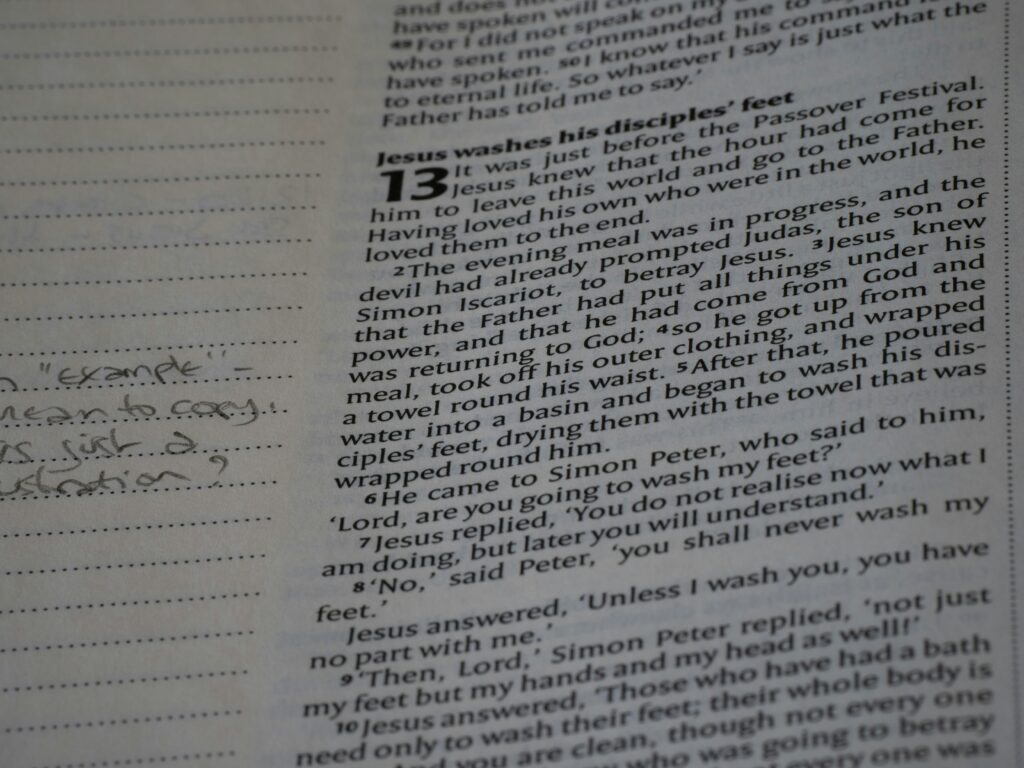 "example" –
mean to copy.
just a
?
and does not
have spoken will
⁴⁹For I did not speak on my
who sent me commanded me to say
have spoken. ⁵⁰I know that his command
to eternal life. So whatever I say is just what the
Father has told me to say.'
Jesus washes his disciples' feet
13 It was just before the Passover Festival.
Jesus knew that the hour had come for
him to leave this world and go to the Father.
Having loved his own who were in the world, he
loved them to the end.
²The evening meal was in progress, and the
devil had already prompted Judas, the son of
Simon Iscariot, to betray Jesus. ³Jesus knew
that the Father had put all things under his
power, and that he had come from God and
was returning to God; ⁴so he got up from the
meal, took off his outer clothing, and wrapped
a towel round his waist. ⁵After that, he poured
water into a basin and began to wash his dis-
ciples' feet, drying them with the towel that was
wrapped round him.
⁶He came to Simon Peter, who said to him,
'Lord, are you going to wash my feet?'
⁷Jesus replied, 'You do not realise now what I
am doing, but later you will understand.'
⁸'No,' said Peter, 'you shall never wash my
feet.'
Jesus answered, 'Unless I wash you, you have
no part with me.'
⁹'Then, Lord,' Simon Peter replied, 'not just
my feet but my hands and my head as well!'
¹⁰Jesus answered, 'Those who have had a bath
need only to wash their feet; their whole body is
And you are clean, though not every one
who was going to betray
every one was